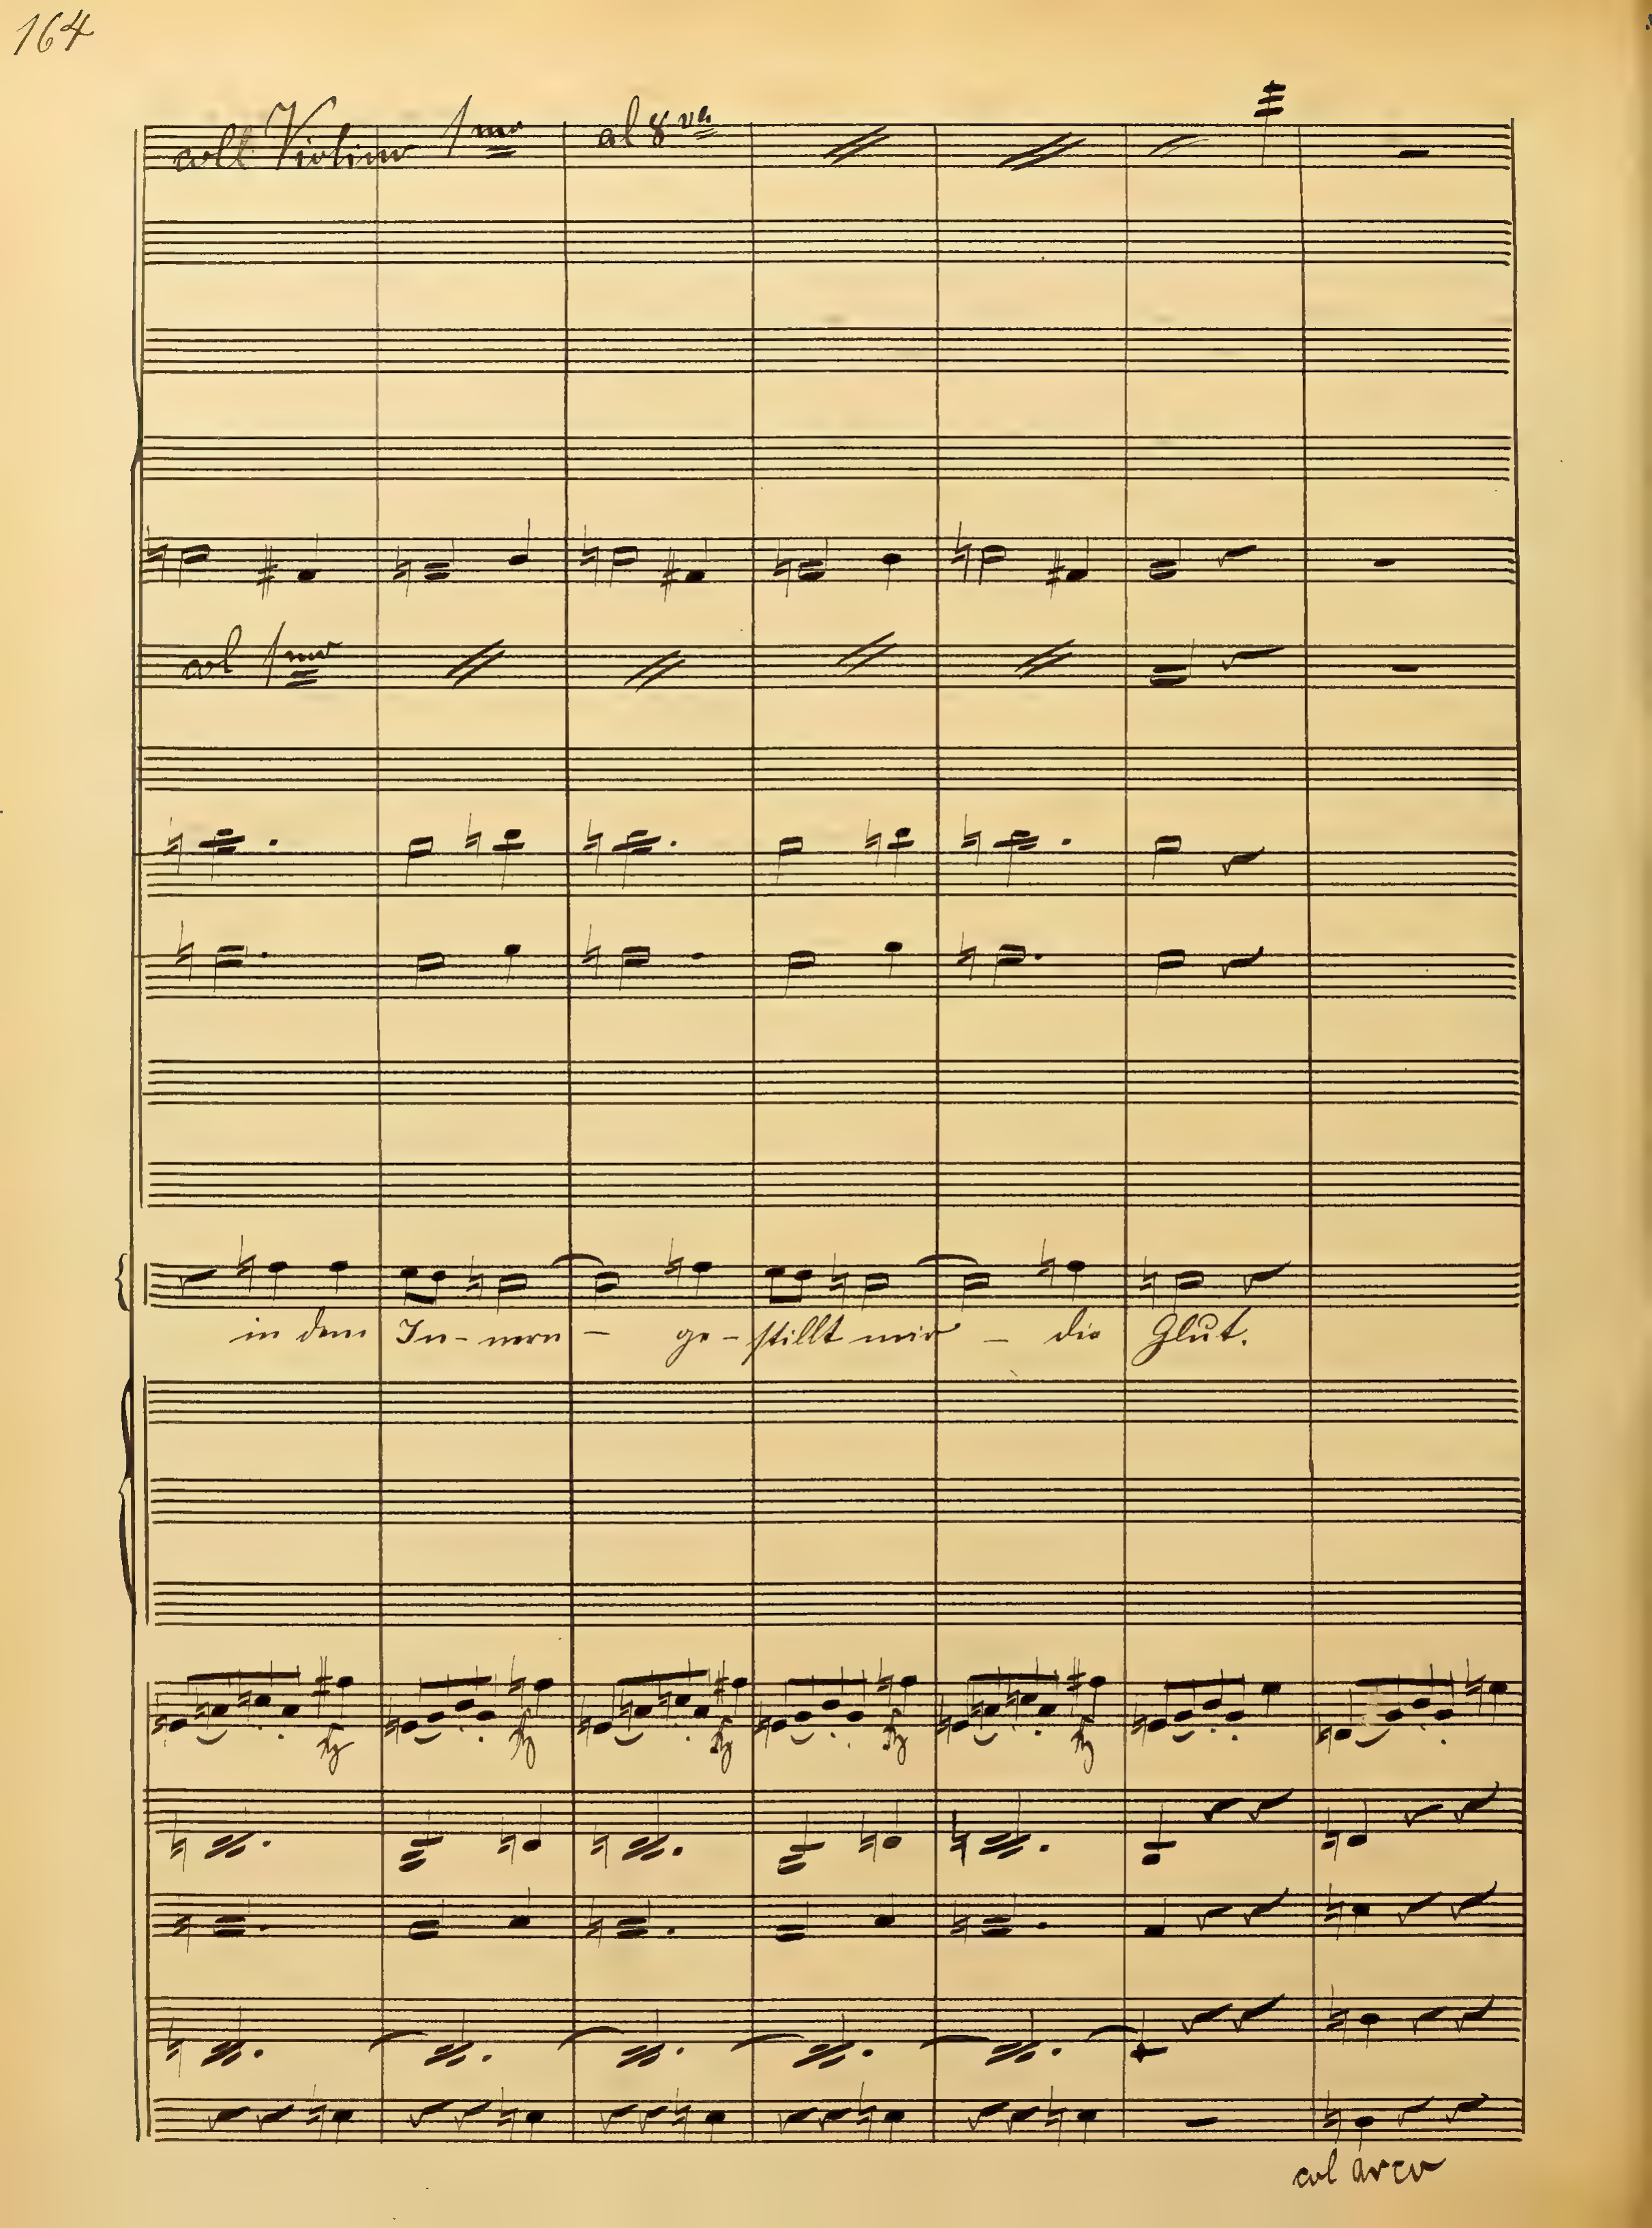 164
coll Violino 1mo al 8va
col 1mo
in dem In-nern - ge-stillt mir - die Glut.
fz fz fz fz fz
col arco